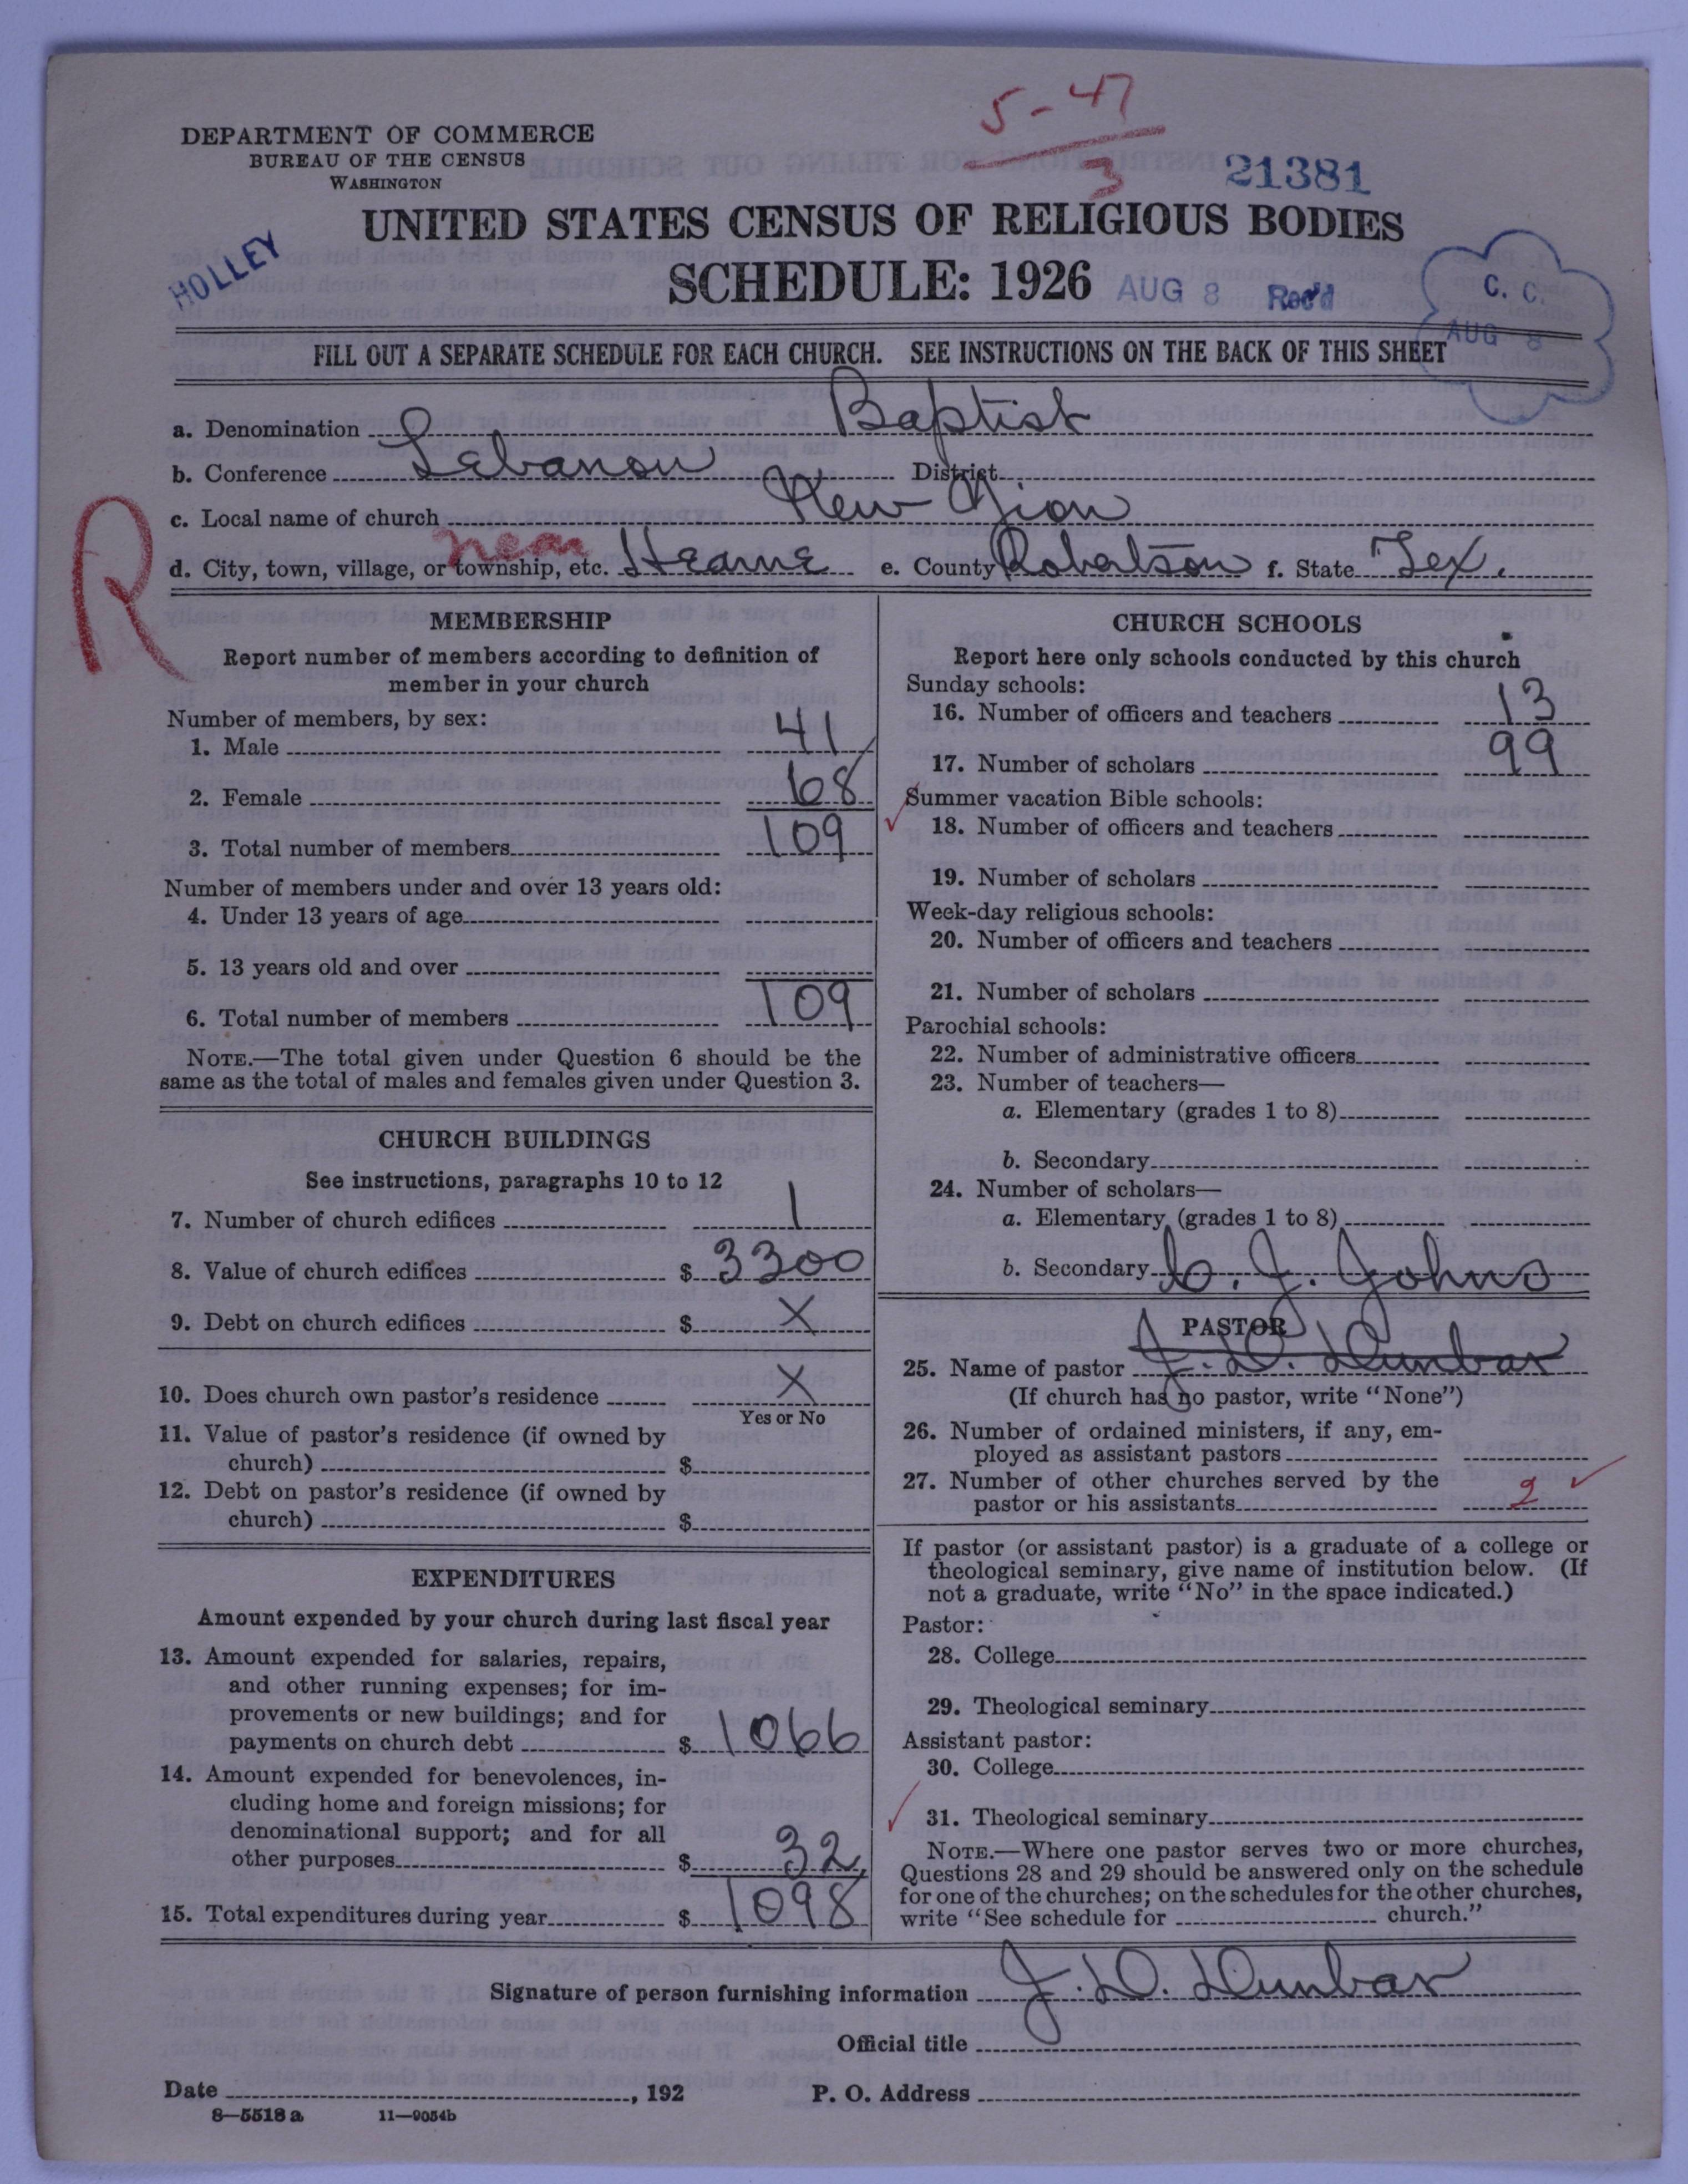 5-47
3
21381
DEPARTMENT OF COMMERCE
BUREAU OF THE CENSUS
WASHINGTON
UNITED STATES CENSUS OF RELIGIOUS BODIES
HOLLEY
SCHEDULE: 1926
AUG 8 Rec'd
C. C.
AUG 8
FILL OUT A SEPARATE SCHEDULE FOR EACH CHURCH. SEE INSTRUCTIONS ON THE BACK OF THIS SHEET
a. Denomination Baptist
b. Conference Lebanon District
c. Local name of church New Zion
R
near
d. City, town, village, or township, etc. Hearne e. County Robertson f. State Tex.
MEMBERSHIP
Report number of members according to definition of
member in your church
Number of members, by sex:
1. Male 41
2. Female 68
3. Total number of members 109
Number of members under and over 13 years old:
4. Under 13 years of age
5. 13 years old and over
6. Total number of members 109
NOTE.—The total given under Question 6 should be the
same as the total of males and females given under Question 3.
CHURCH BUILDINGS
See instructions, paragraphs 10 to 12
7. Number of church edifices 1
8. Value of church edifices $ 3300
9. Debt on church edifices $ X
10. Does church own pastor's residence X
Yes or No
11. Value of pastor's residence (if owned by
church) $
12. Debt on pastor's residence (if owned by
church) $
EXPENDITURES
Amount expended by your church during last fiscal year
13. Amount expended for salaries, repairs,
and other running expenses; for im-
provements or new buildings; and for
payments on church debt $ 1066
14. Amount expended for benevolences, in-
cluding home and foreign missions; for
denominational support; and for all
other purposes $ 32
15. Total expenditures during year $ 1098
CHURCH SCHOOLS
Report here only schools conducted by this church
Sunday schools:
16. Number of officers and teachers 13
17. Number of scholars 99
Summer vacation Bible schools:
18. Number of officers and teachers
19. Number of scholars
Week-day religious schools:
20. Number of officers and teachers
21. Number of scholars
Parochial schools:
22. Number of administrative officers
23. Number of teachers—
a. Elementary (grades 1 to 8)
b. Secondary
24. Number of scholars—
a. Elementary (grades 1 to 8)
b. Secondary
C. J. Johns
PASTOR
25. Name of pastor J. D. Dunbar
(If church has no pastor, write "None")
26. Number of ordained ministers, if any, em-
ployed as assistant pastors
27. Number of other churches served by the
pastor or his assistants 2
If pastor (or assistant pastor) is a graduate of a college or
theological seminary, give name of institution below. (If
not a graduate, write "No" in the space indicated.)
Pastor:
28. College
29. Theological seminary
Assistant pastor:
30. College
31. Theological seminary
NOTE.—Where one pastor serves two or more churches,
Questions 28 and 29 should be answered only on the schedule
for one of the churches; on the schedules for the other churches,
write "See schedule for church."
Signature of person furnishing information J. D. Dunbar
Official title
Date , 192
P. O. Address
8—5518 a 11—9054b